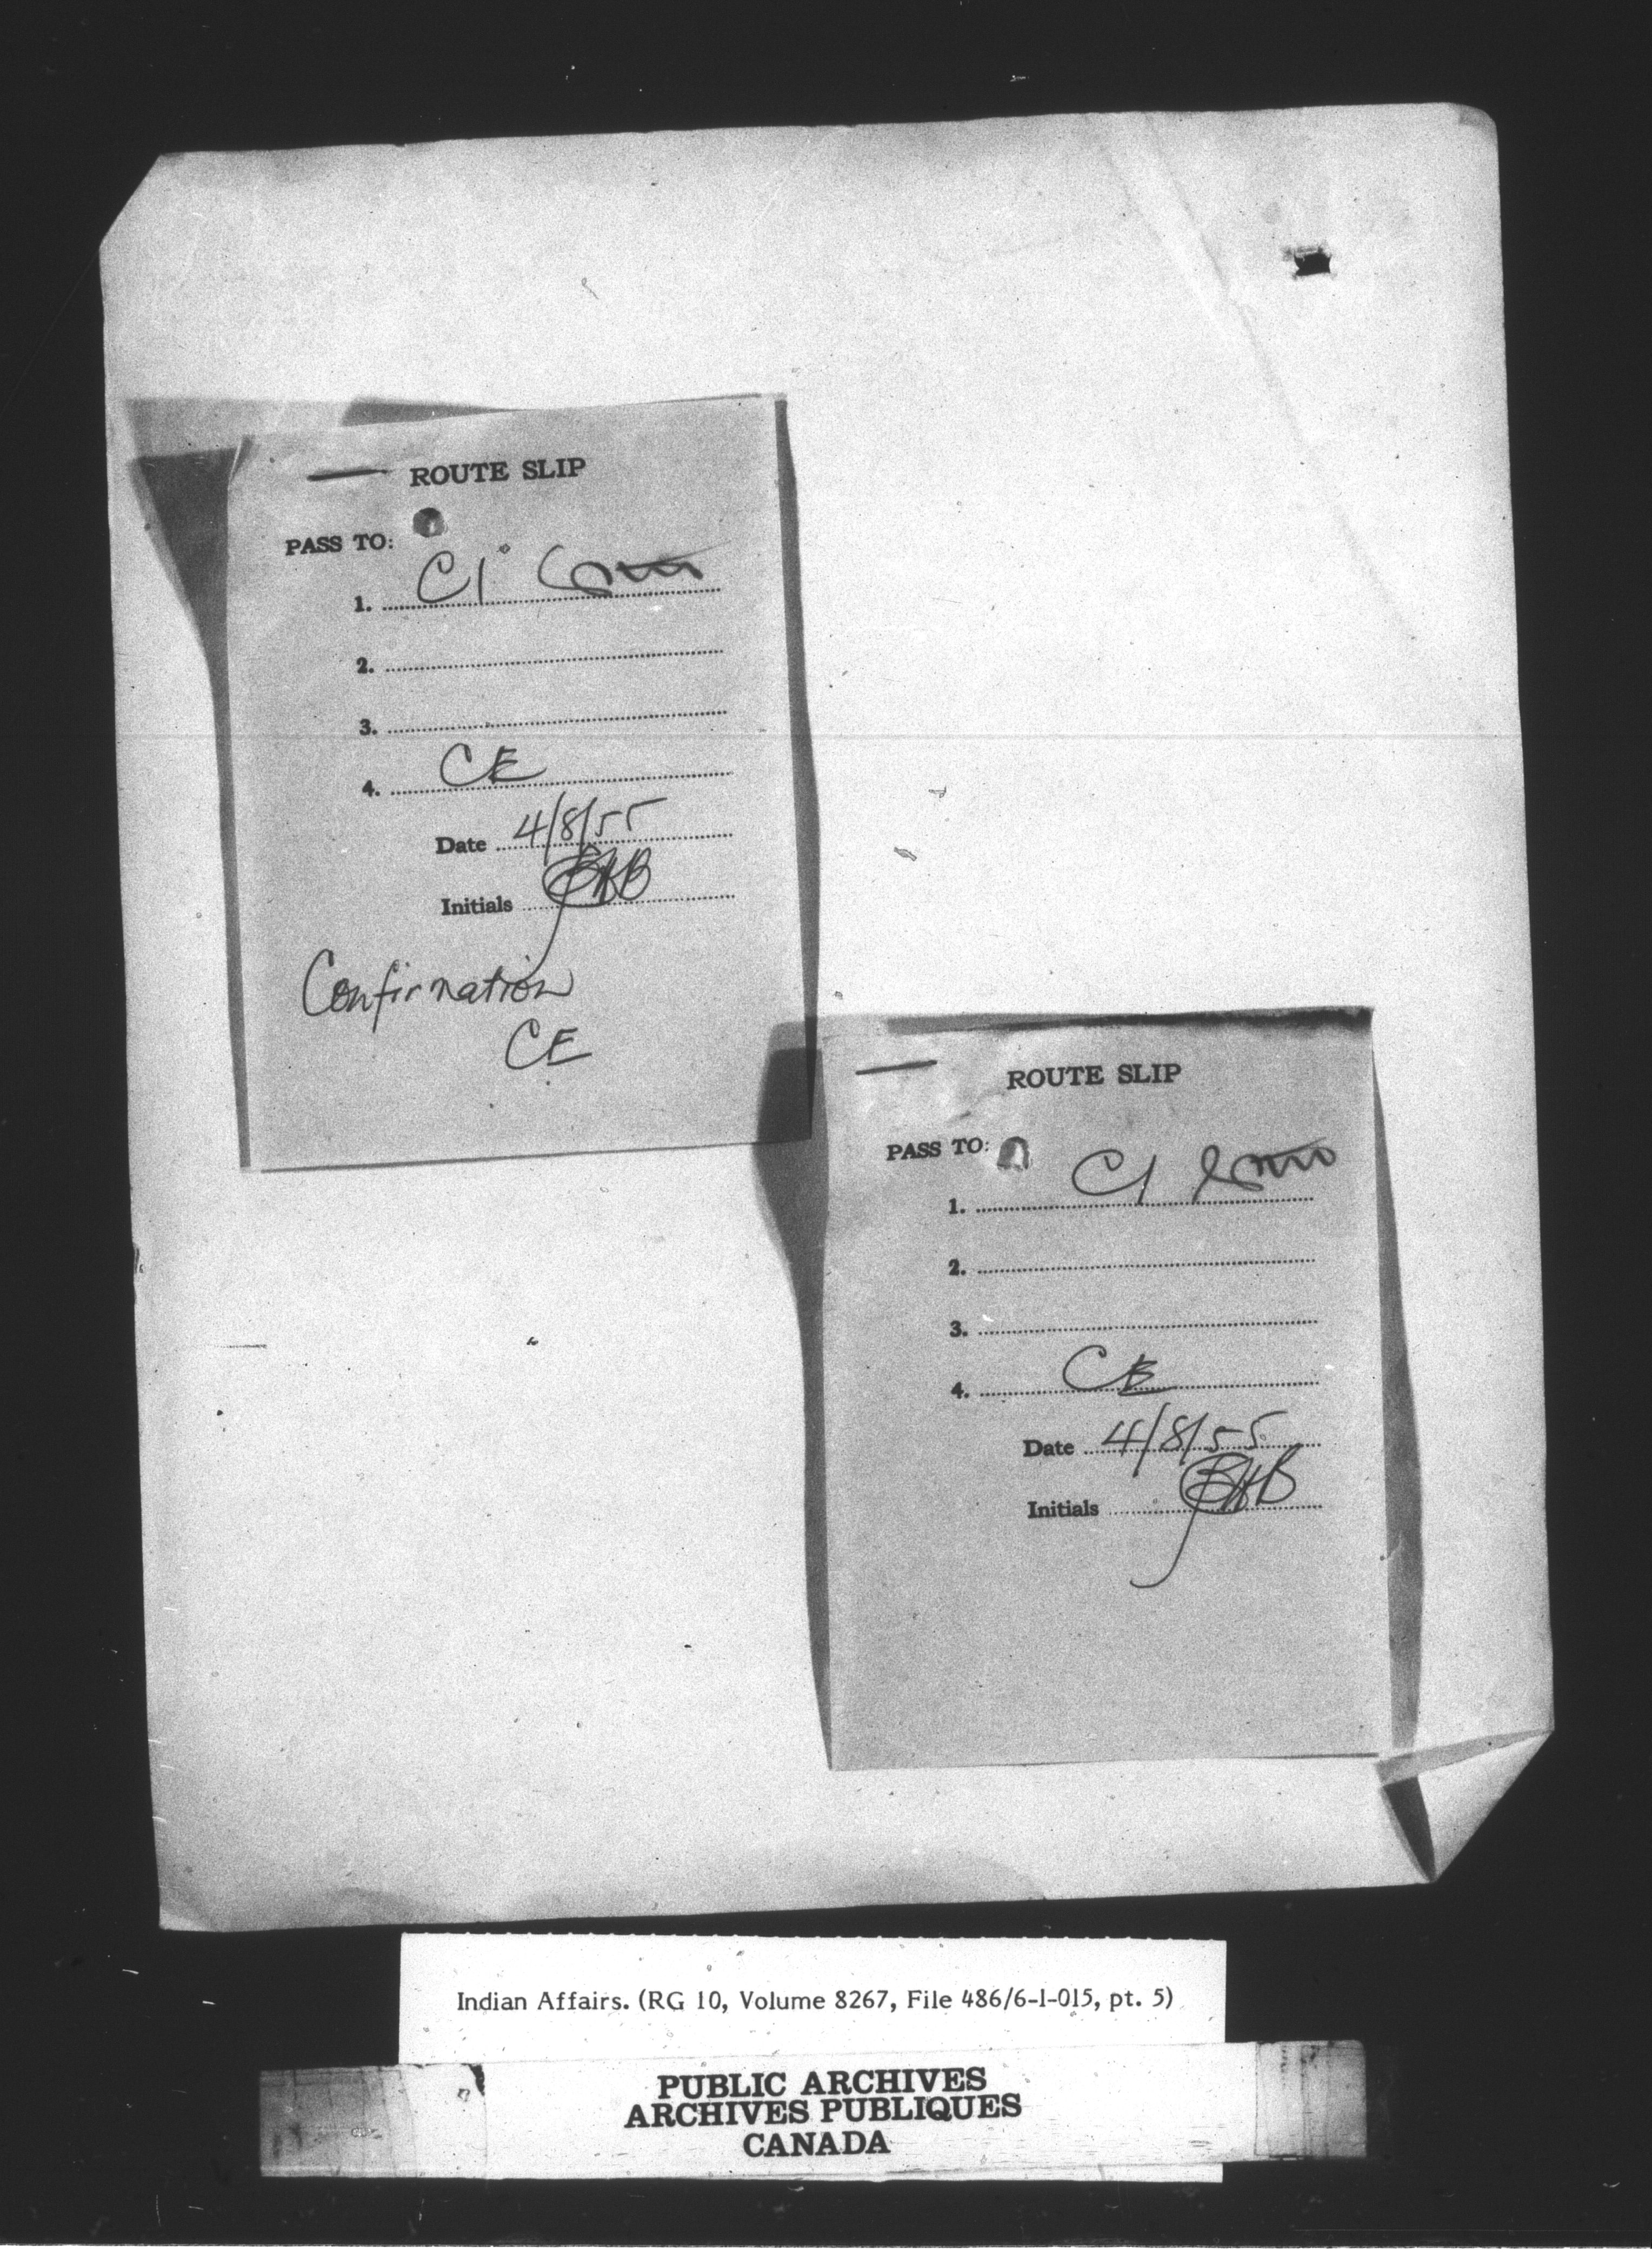 ROUTE SLIP
PASS TO:
1. CI Comm
2.
3.
4. CE
Date 4/8/55
Initials
Confirmation
CE
ROUTE SLIP
PASS TO:
1. CI Comm
2.
3.
4. CE
Date 4/8/55
Initials
Indian Affairs. (RG 10, Volume 8267, File 486/6-1-015, pt. 5)
PUBLIC ARCHIVES
ARCHIVES PUBLIQUES
CANADA